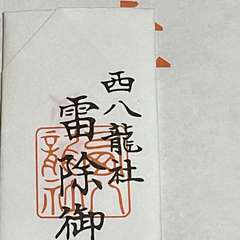 西八龍社
雷除御